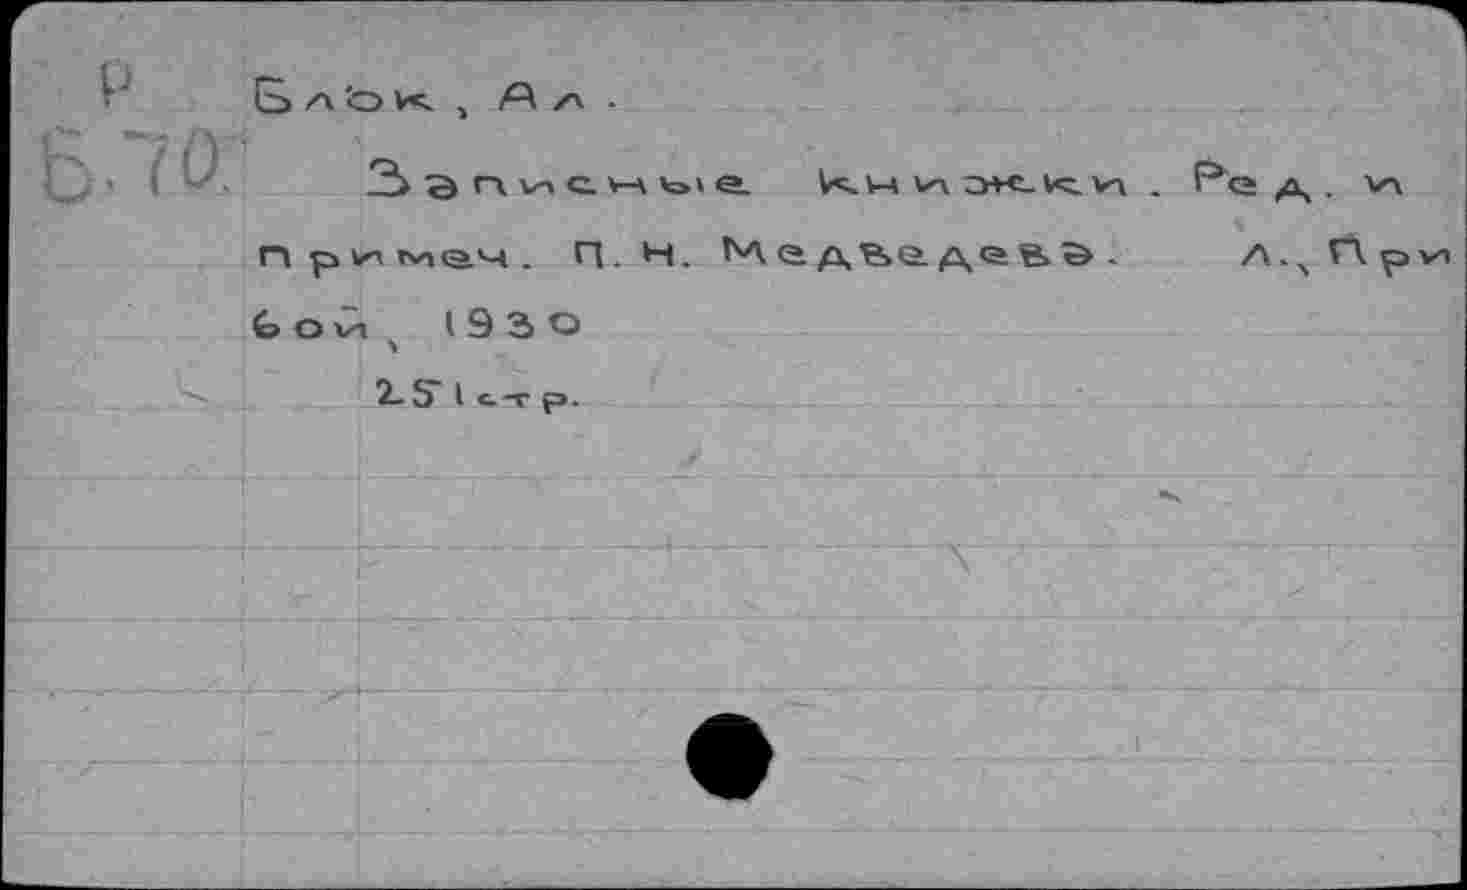 Р
Б.70.
Блок, Ал.
Записные книжки. Ред. и
примеч. П. Н. Медведева. Л., При
бой, 1930
251 стр.